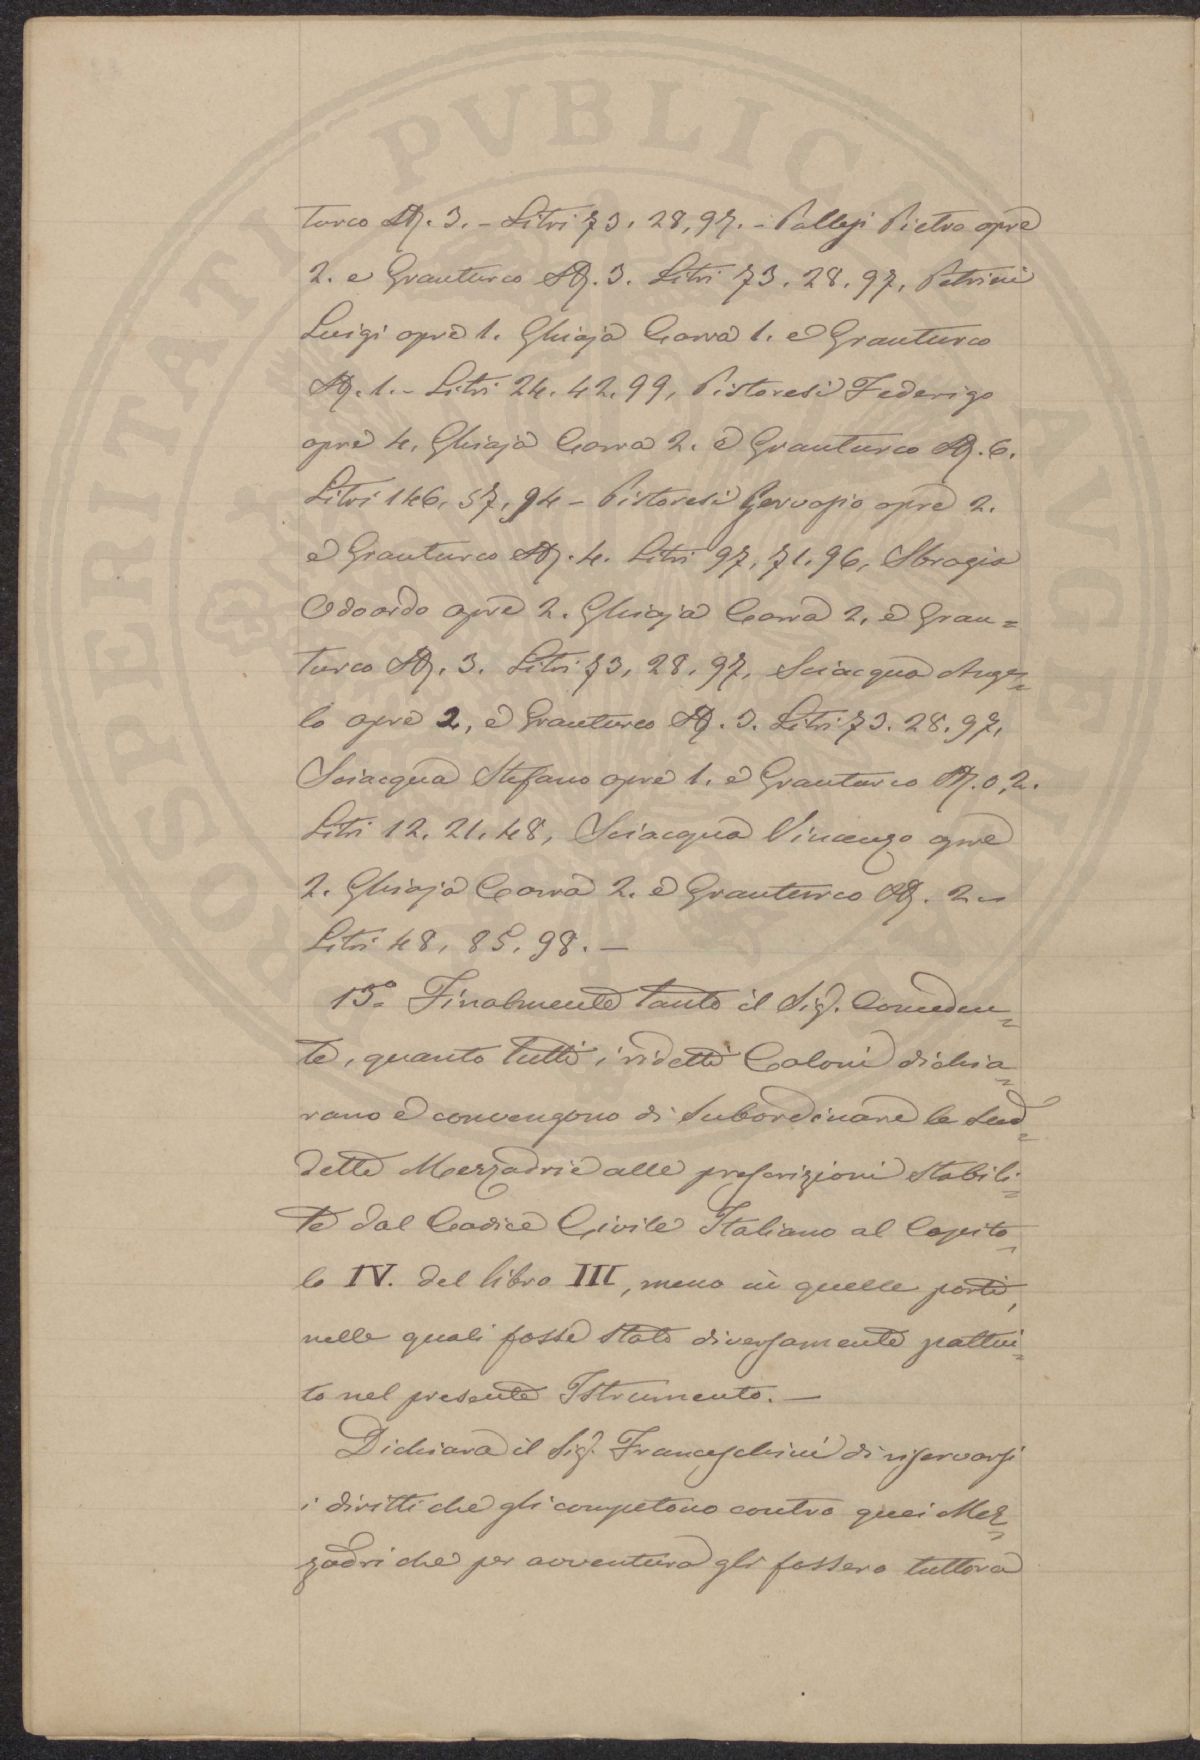 PROSPERITATI PVBLICAE AVGENDAE
turco St. 3. - Litri 73. 28, 97. - Pallesi Pietro opre
2. e Granturco St. 3. Litri 73. 28. 97, Petrini
Luigi opre 1. Ghiaja Carra 1. e Granturco
St. 1. - Litri 24. 42. 99, Pistoresi Federigo
opre 4, Ghiaja Carra 2. e Granturco St. 6.
Litri 146, 57, 94 - Pistoresi Gervasio opre 2.
e Granturco St. 4. Litri 97, 71. 96, Sbragia
Odoardo opre 2. Ghiaja Carra 2, e Gran=
turco St. 3. Litri 73, 28. 97, Sciacqua Ange=
lo opre 2, e Granturco St. 3. Litri 73. 28. 97,
Sciacqua Stefano opre 1. e Granturco St. 0,2.
Litri 12. 21. 48, Sciacqua Vincenzo opre
2. Ghiaja Carra 2. e Granturco St. 2 -
Litri 48, 85. 98. —
13º Finalmente tanto il Sigr. Conceden=
te, quanto tutti i ridetti Coloni dichia=
rano e convengono di subordinare le sud=
dette Mezzadrie alle prescrizioni stabili=
te dal Codice Civile Italiano al Capito=
lo IV. del libro III, meno in quelle parti,
nelle quali fosse stato diversamente pattui=
to nel presente Istrumento. —
Dichiara il Sigr. Franceschini di riservarsi
i diritti che gli competono contro quei Mez=
zadri che per avventura gli fossero tuttora